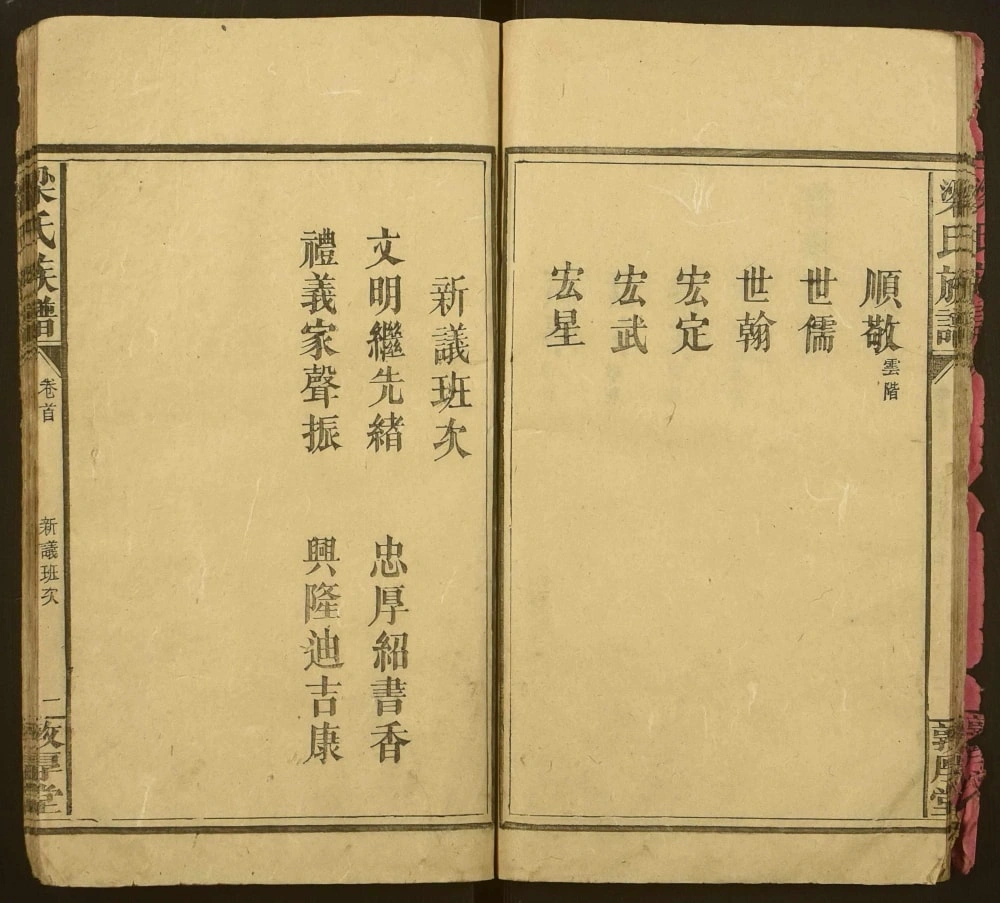 梁氏族譜
敦厚堂
順敬雲階
世儒
世翰
宏定
宏武
宏星
新議班次
文明繼先緒　忠厚紹書香
禮義家聲振　興隆迪吉康
梁氏族譜
卷首
新議班次
一
敦厚堂